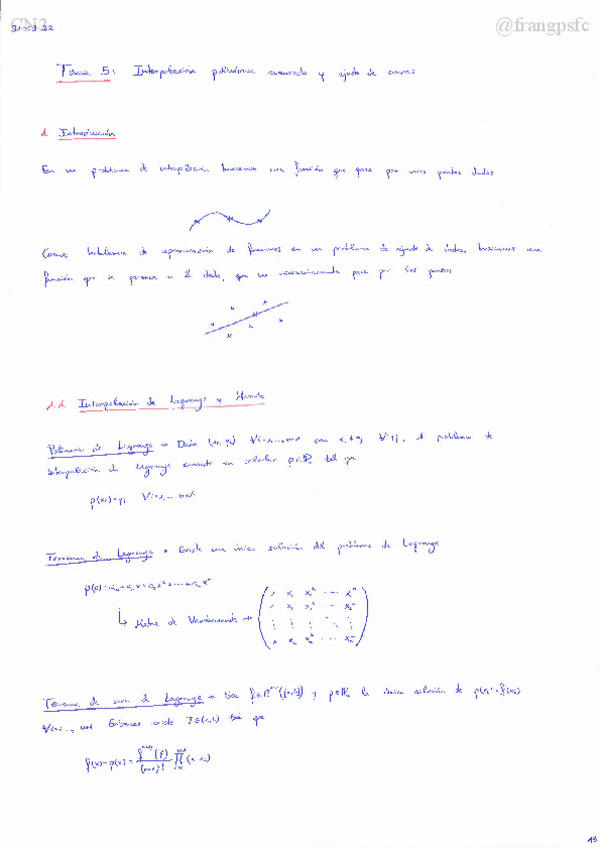 CN2
@frangpsfc
Tema 5: Interpolación polinómica, avanzada y ajuste de curvas
1. Introducción
En un problema de interpolación buscamos una función que pase por unos puntos dados
problema de aproximación de funciones es un problema de ajuste de datos, buscamos una
función que se parezca a dada, que no necesariamente pase por los puntos
1.1. Interpolación de Lagrange y Hermite
Problema de Lagrange → Dados (xi, yi) ∀i=1,...,n+1 con xi≠xj ∀i≠j, el problema de
interpolación de Lagrange consiste en calcular p∈Pn tal que
p(xi)=yi ∀i=1,...,n+1
Teorema de Lagrange → Existe una única solución del problema de Lagrange
p(x)=a0+a1x+a2x²+...+anxⁿ
↳ Matriz de Vandermonde →
1 x1 x1² ... x1ⁿ
1 x2 x2² ... x2ⁿ
Teorema de error de Lagrange → Sea f∈Cⁿ⁺¹([a,b]) y p∈Pn la única solución de p(xi)=f(xi)
∀i=1,...,n+1 Entonces existe ξ∈(a,b) tal que
f(x)-p(x)= fⁿ⁺¹(ξ)/(n+1)! ∏(x-xi)
19